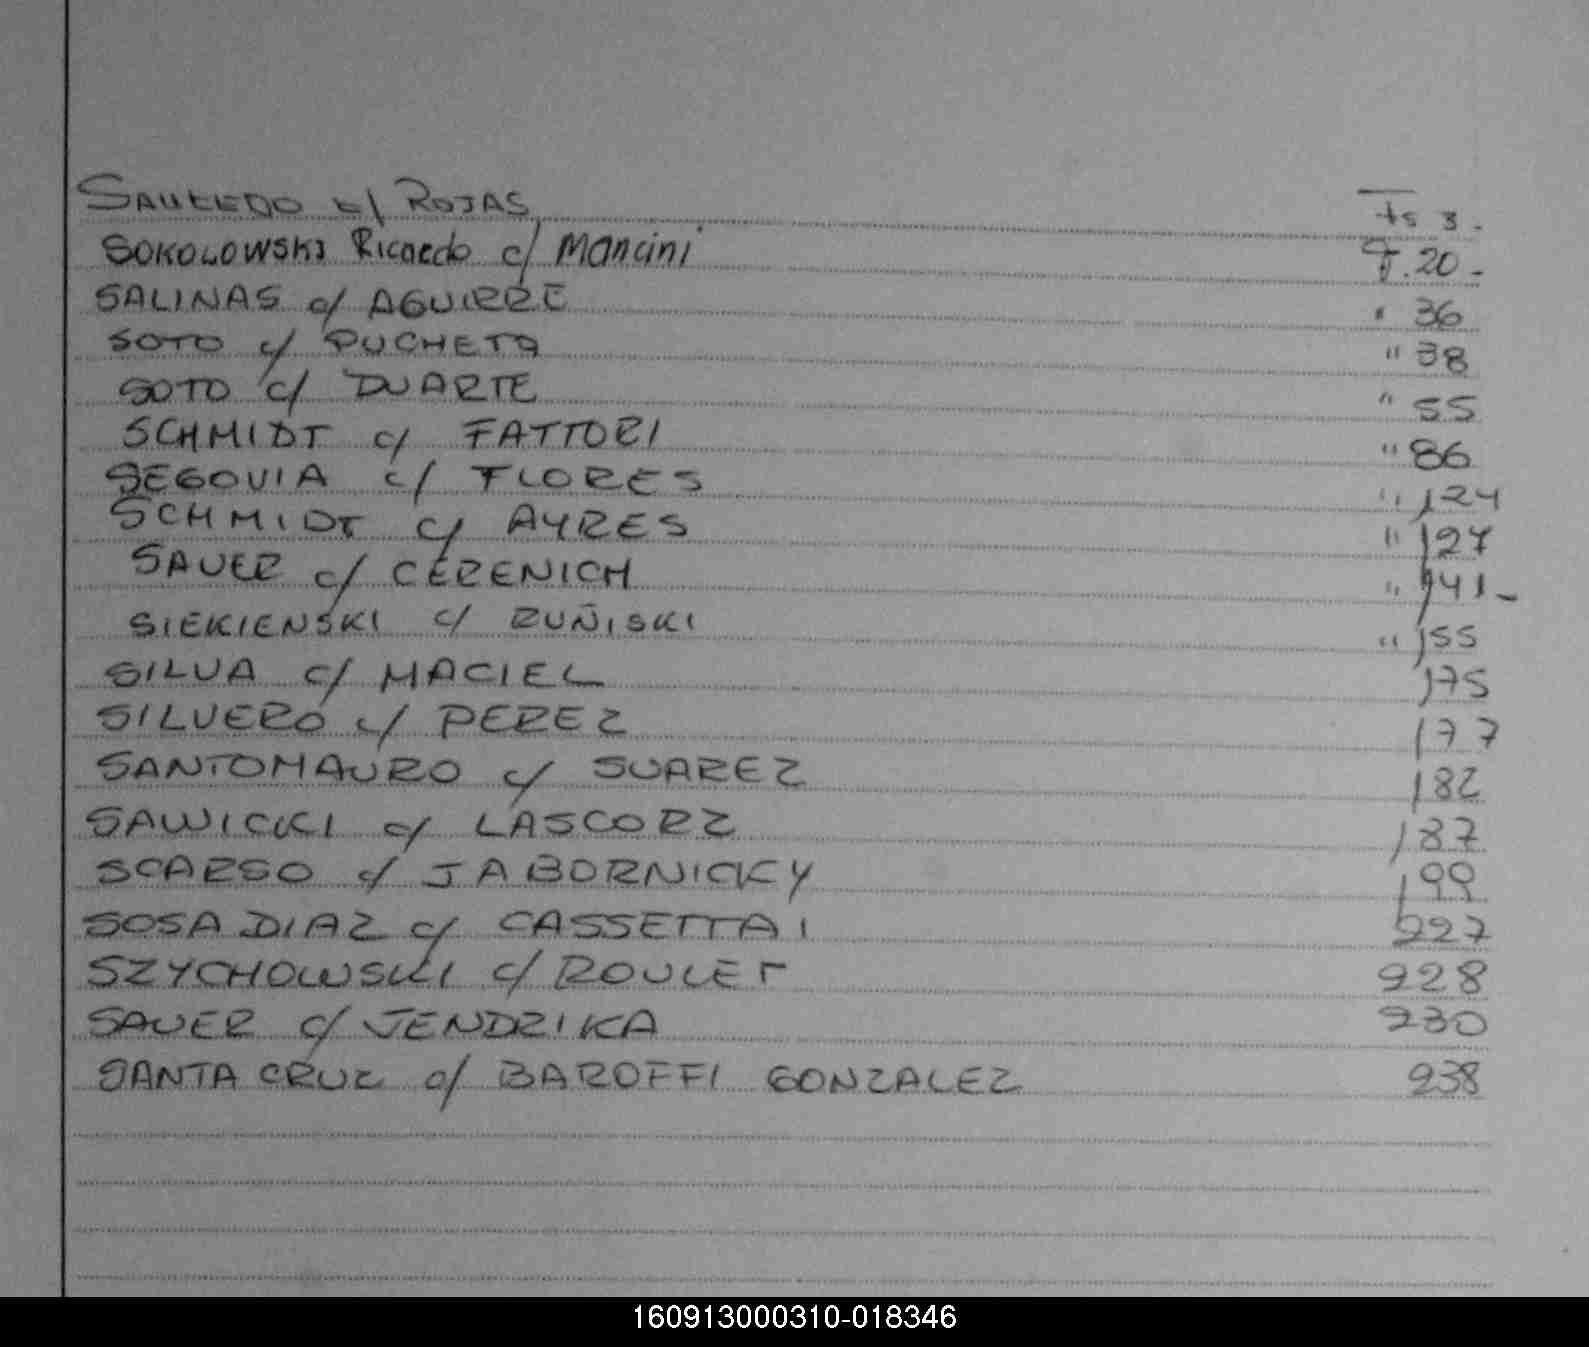 SAUCEDO c/ ROJAS fs 3.
SOKOLOWSKI Ricardo c/ Mancini F. 20.-
SALINAS c/ AGUIRRE " 36
SOTO c/ PUCHETA " 38
SOTO c/ DUARTE " 55
SCHMIDT c/ FATTORI " 86
SEGOVIA c/ FLORES " 124
SCHMIDT c/ AYRES " 127
SAUER c/ CERENICH " 141-
SIEKIENSKI c/ RUÑISKI " 155
SILVA c/ MACIEL 175
SILVERO c/ PEREZ 177
SANTOMAURO c/ SUAREZ 182
SAWICKI c/ LASCORZ 187
SCARSO c/ JABORNICKY 199
SOSA DIAZ c/ CASSETTAI 227
SZYCHOWSKI c/ ROULET 228
SAUER c/ JENDRIKA 230
SANTA CRUZ c/ BAROFFI GONZALEZ 238
160913000310-018346